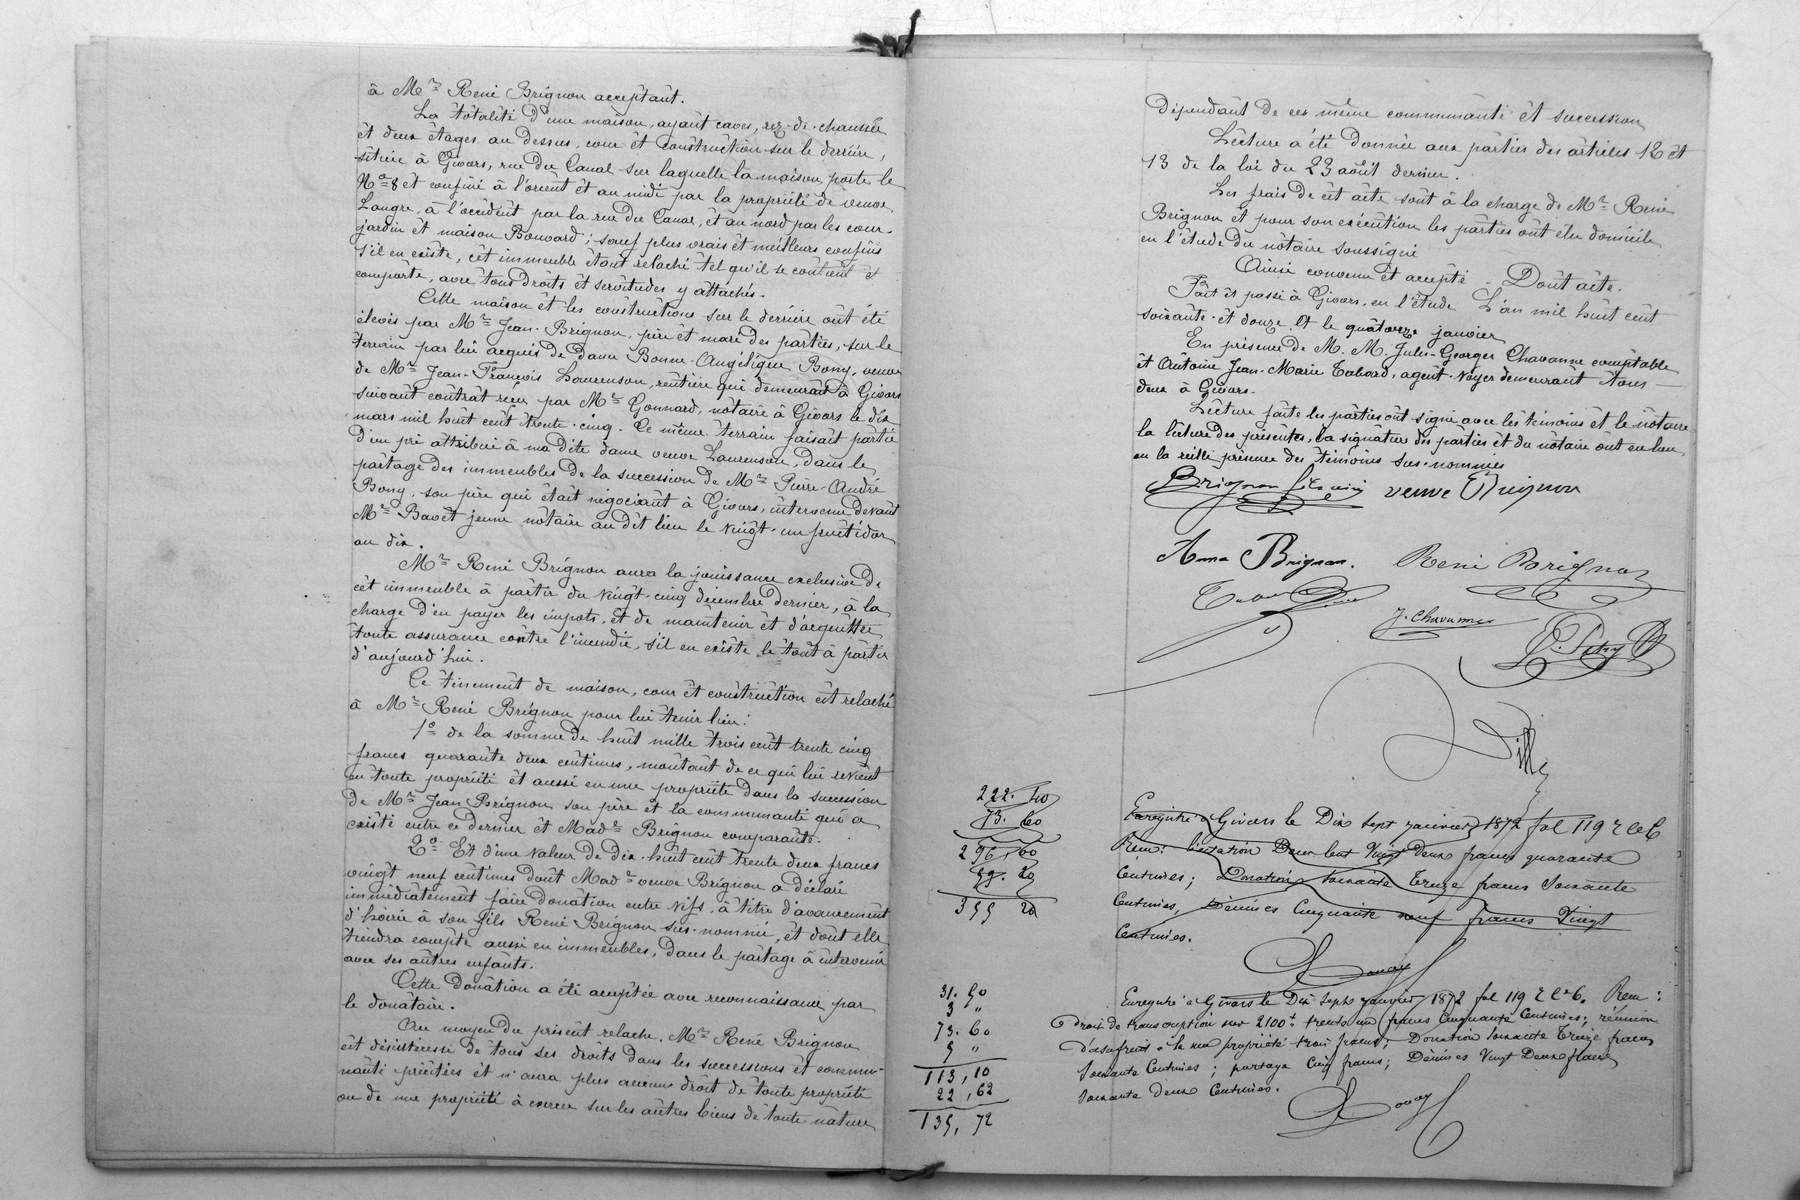 à Mr René Brignon acceptant.
La totalité d'une maison, ayant caves, rez-de-chaussée
et deux étages au dessus, cour et construction sur le derrière,
située à Givors, rue du Canal sur laquelle la maison porte le
No 8 et confiné à l'orient et au midi par la propriété de veuve
Laugre, à l'occident par la rue du Canal, et au nord par les cour
jardin et maison Bouvard; sauf plus vrais et meilleurs confins
s'il en existe, cet immeuble étant relaché tel qu'il se contient et
comporte, avec tous droits et servitudes y attachés.
Cette maison et les constructions sur le derrière ont été
élevés par Mr Jean Brignon, père et mari des parties, sur le
terrain par lui acquis de dame Bonne-Angélique Bony, veuve
de Mr Jean-François Laurenson, rentière qui demeurait à Givors
suivant contrat reçu par Me Gonnard, notaire à Givors le dix
mars mil huit cent trente-cinq. Ce même terrain faisait partie
d'un pré attribué à ma dite dame veuve Laurenson, dans le
partage des immeubles de la succession de Mr Pierre-André
Bony, son père qui était négociant à Givors, intervenu devant
Me Bavet jeune notaire au dit lieu le vingt-un fructidor
an dix.
Mr René Brignon aura la jouissance exclusive de
cet immeuble à partir du vingt-cinq décembre dernier, à la
charge d'en payer les impots, et de maintenir et d'acquitter
toute assurance contre l'incendie, s'il en existe le tout à partir
d'aujourd'hui.
Ce tènement de maison, cour et construction est relaché
à Mr René Brignon pour lui tenir lieu:
1o de la somme de huit mille trois cent trente cinq
francs quarante deux centimes, montant de ce qui lui revient
en toute propriété et aussi en nue propriété dans la succession
de Mr Jean Brignon son père et la communauté qui a
existé entre ce dernier et Made Brignon comparante.
2o Et d'une valeur de dix-huit cent trente deux francs
vingt neuf centimes dont Made veuve Brignon a déclaré
immédiatement faire donation entre vifs, à titre d'avancement
d'hoirie à son fils René Brignon sus-nommé, et dont elle
tiendra compte aussi en immeubles, dans le partage à intervenir
avec ses autres enfants.
Cette donation a été acceptée avec reconnaissance par
le donataire.
Au moyen du présent relache, Mr René Brignon
est désintéressé de tous ses droits dans les successions et commu-
nauté précitées et n'aura plus aucun droit de toute propriété
ou de nue propriété à exercer sur les autres biens de toute nature
dépendant de ces même communauté et succession
Lecture a été donnée aux parties des articles 12 et
13 de la loi du 23 août dernier.
Les frais de cet acte sont à la charge de Mr René
Brignon et pour son exécution les parties ont élu domicile
en l'étude du notaire soussigné
Ainsi convenu et accepté - Dont acte.
Fait et passé à Givors, en l'étude L'an mil huit cent
soixante-et douze. Et le quatorze janvier
En présence de M. M. Jules-Georges Chavanne comptable
et Antoine Jean-Marie Tabard, agent-voyer demeurant tous
deux à Givors.
Lecture faite les parties ont signé avec les témoins et le notaire
la lecture des présentes, la signature des parties et du notaire ont eu lieu
en la réelle présence des témoins sus-nommés
Brignon veuve Brignon
Anna Brignon. René Brignon
J. Chavanne
222. 40
73. 60
296, 00
59. 20
355 20
Enregistré à Givors le Dix Sept janvier 1872 fol 119 r c 6
Recu: licitation Deux Cent Vingt Deux francs quarante
Centimes; Donation Soixante Treize francs Soixante
Centimes, Décimes Cinquante neuf francs Vingt
Centimes.
31. 50
3 "
73. 60
5 "
113, 10
22, 62
135, 72
Enregistré à Givors le Dix Sept janvier 1872 fol 119 r c 6. Recu:
droit de transcription sur 2100f trente un francs Cinquante Centimes; réunion
d'usufruit à la nue propriété trois francs; Donation Soixante Treize francs
Soixante Centimes; partage Cinq francs; Décimes Vingt Deux francs
Soixante Deux Centimes.